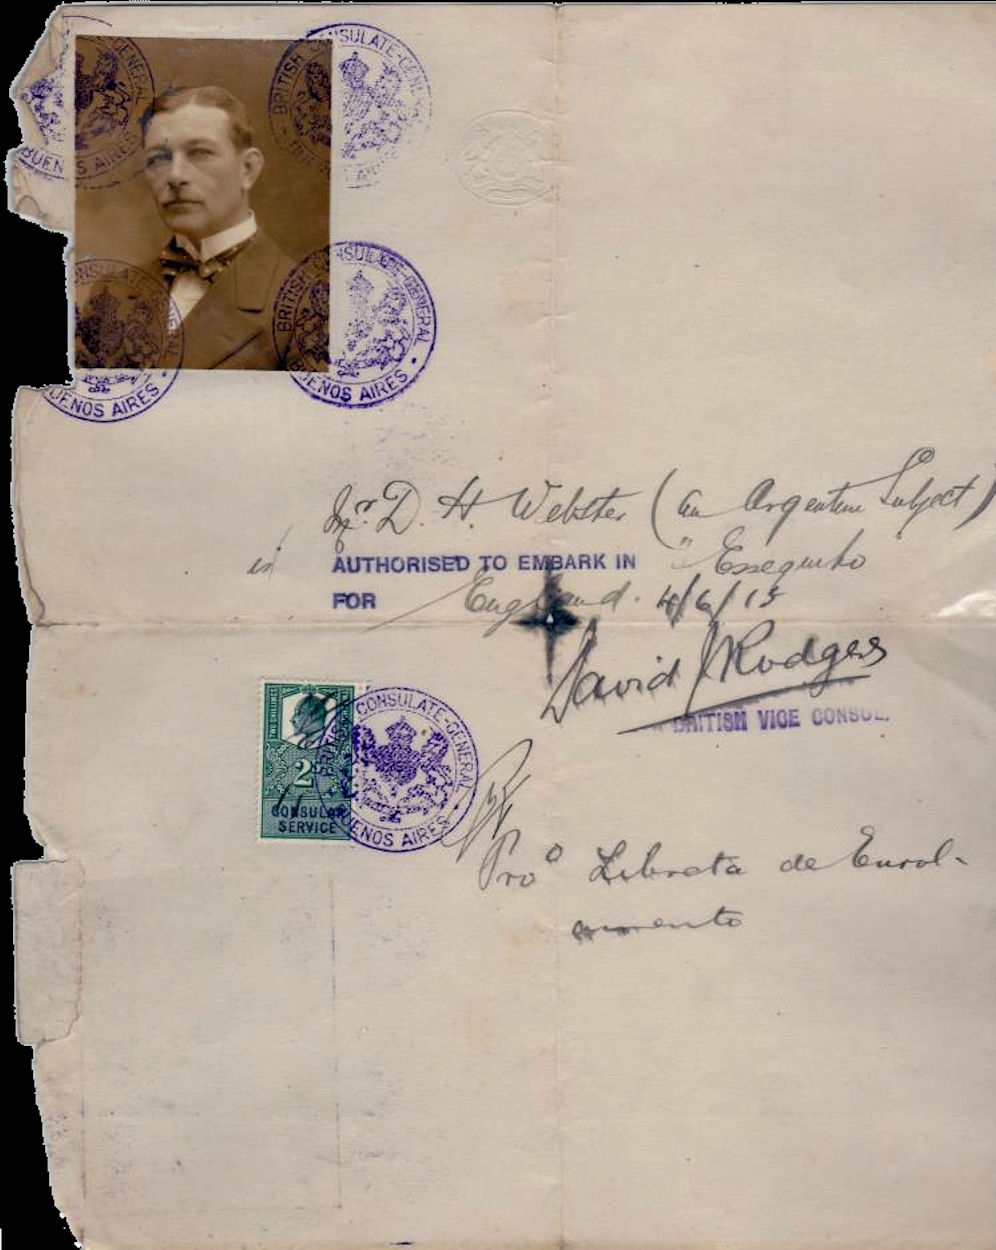 BRITISH CONSULATE-GENERAL
BUENOS AIRES
BRITISH CONSULATE-GENERAL
BUENOS AIRES
CONSULATE-GENERAL
BUENOS AIRES
BRITISH CONSULATE-GENERAL
BUENOS AIRES
Mr. D. H. Webster (an Argentine Subject)
is AUTHORISED TO EMBARK IN "Essequibo
FOR England. 4/6/15
David J Rodgers
BRITISH VICE CONSUL.
TWO SHILLINGS
2
CONSULAR
SERVICE
BRITISH CONSULATE-GENERAL
BUENOS AIRES
Pro Libreta de Enrol-
amento